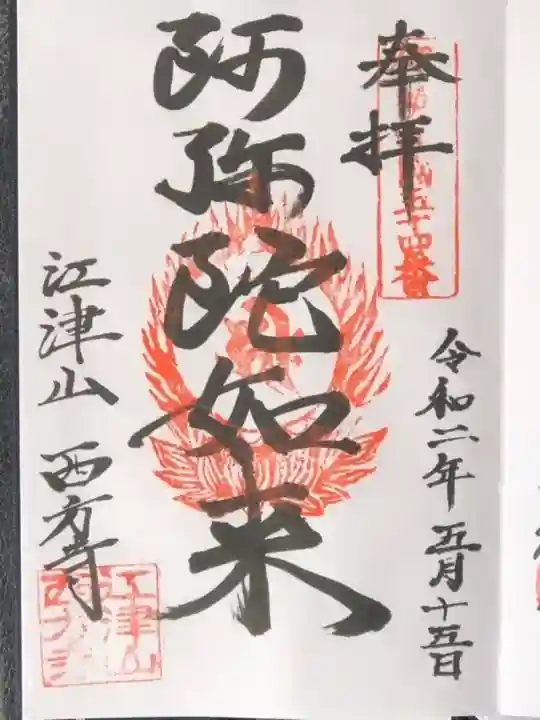 奉拝
五十四番
令和二年五月十五日
阿弥陀如来
江津山 西方寺
江津山
西方寺